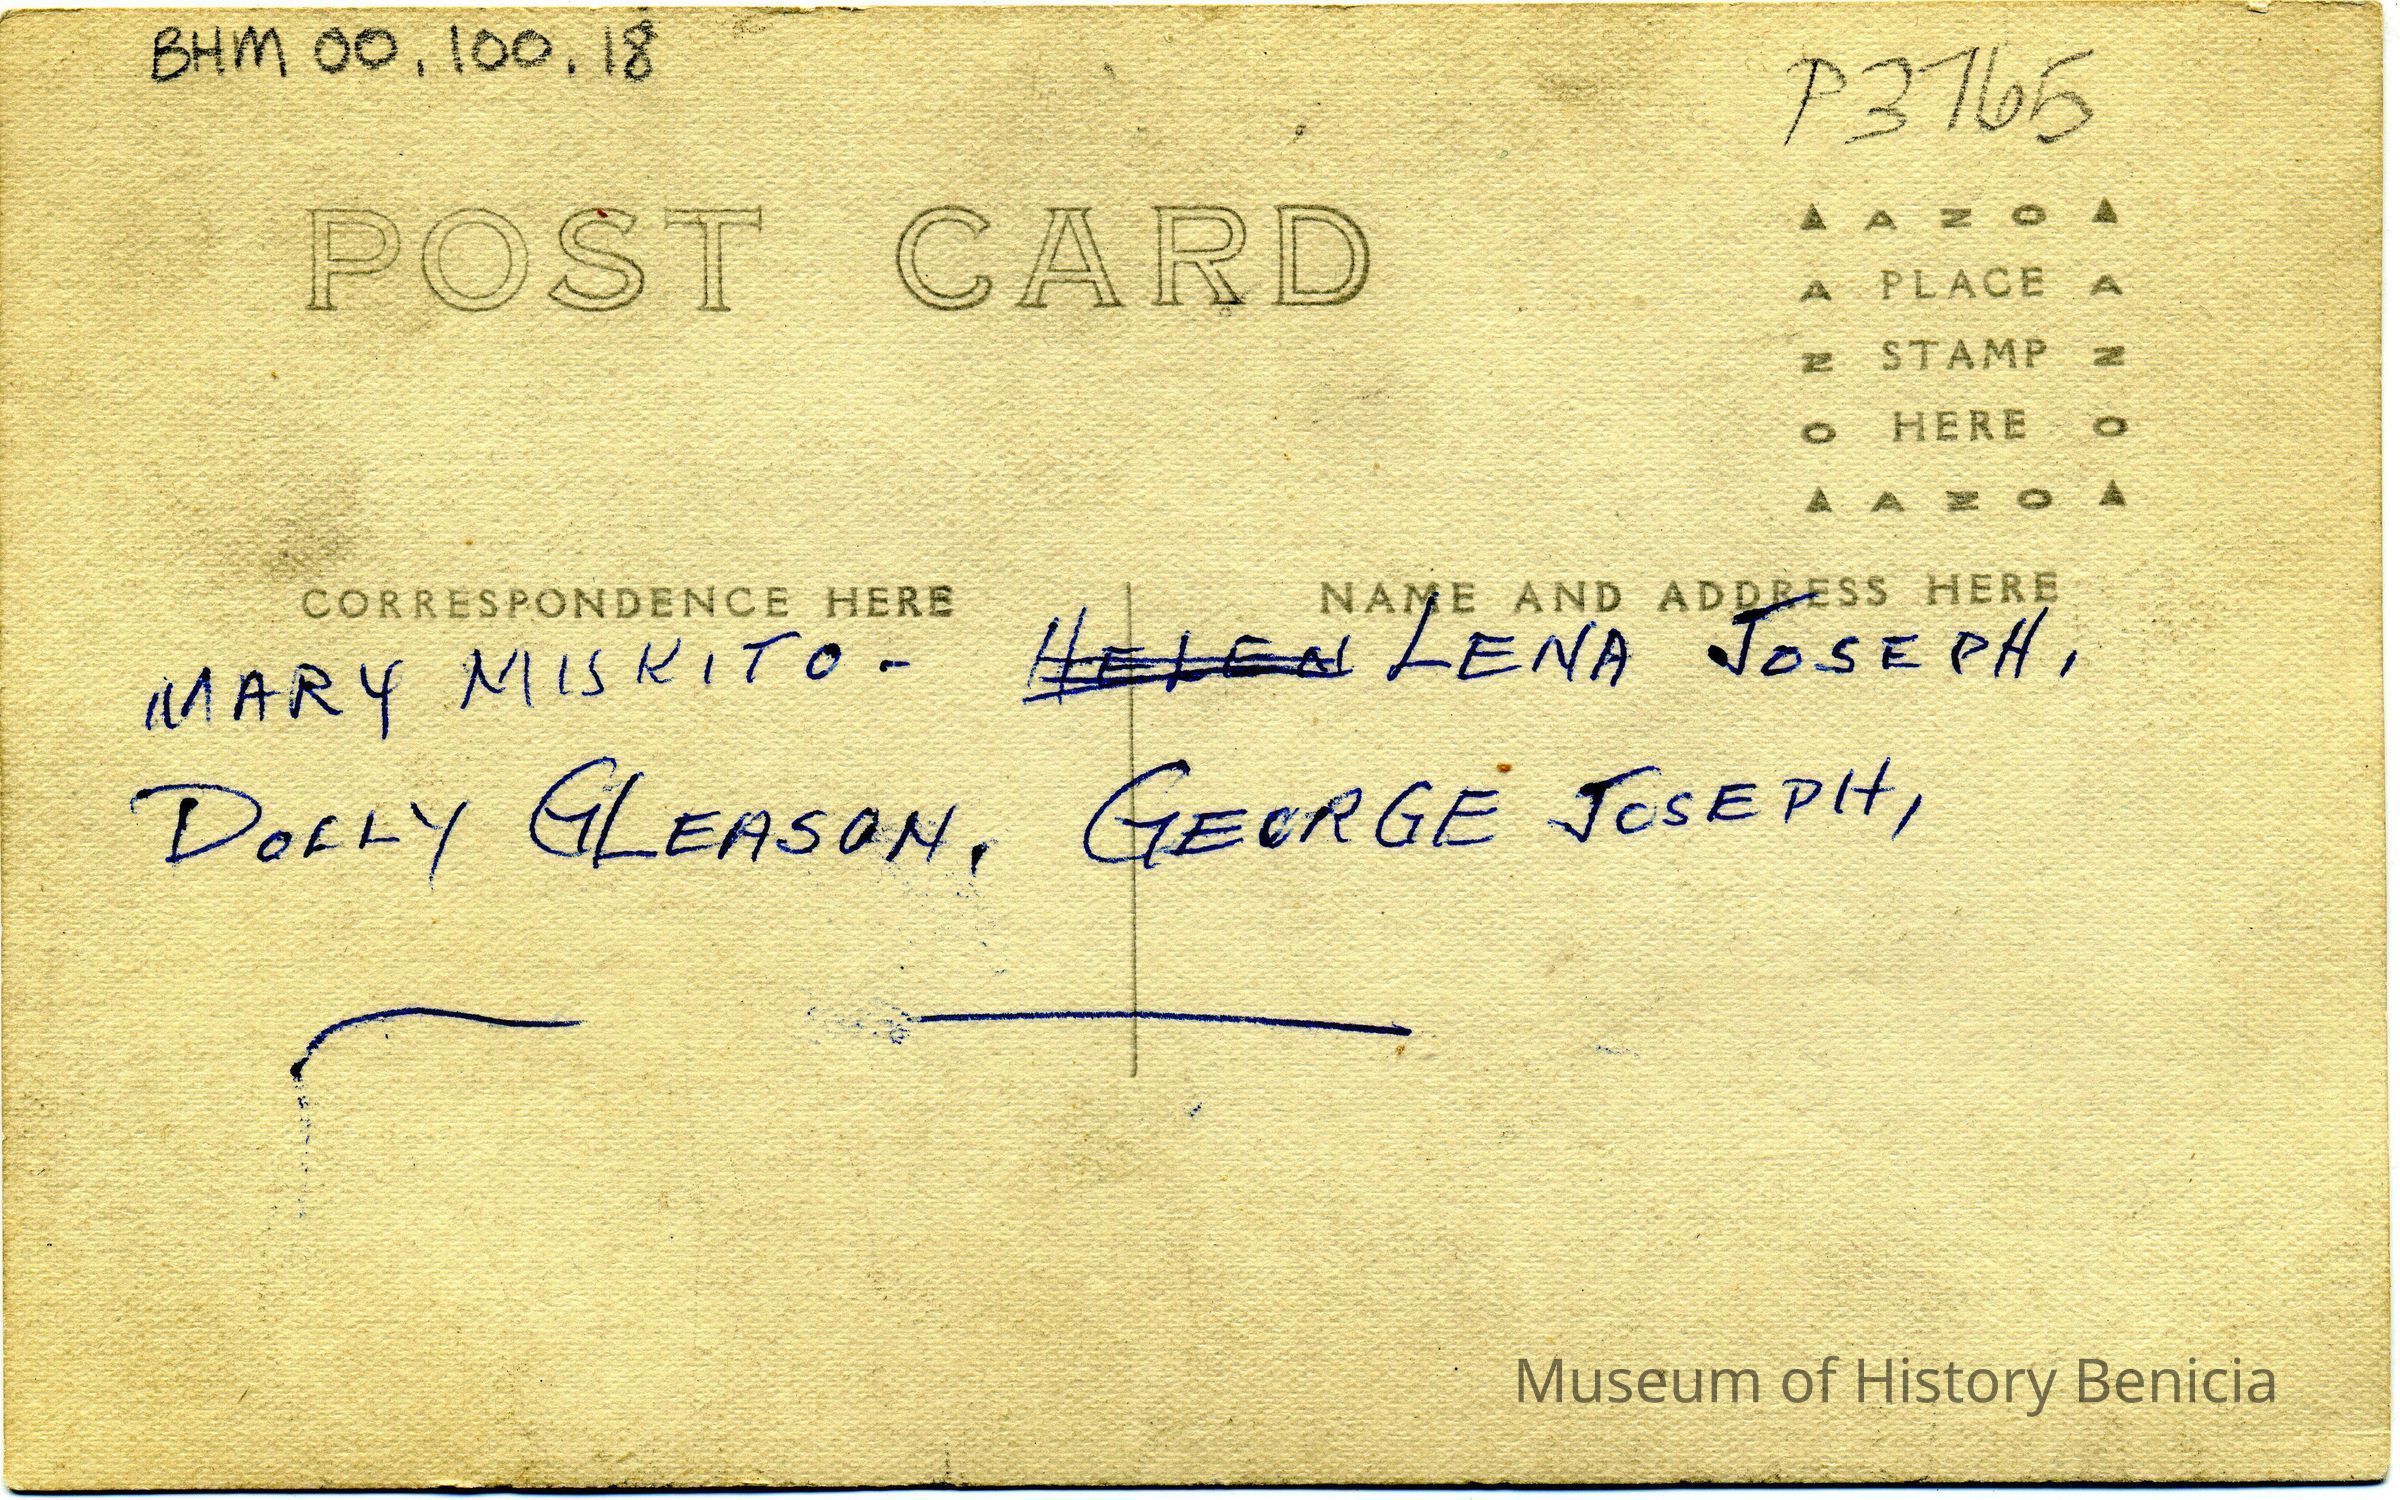 BHM 00.100.18
P3765
POST CARD
AZO
A PLACE A
Z STAMP Z
O HERE O
AZO
CORRESPONDENCE HERE
NAME AND ADDRESS HERE
MARY MISKITO - HELEN LENA JOSEPH,
DOLLY GLEASON, GEORGE JOSEPH,
Museum of History Benicia